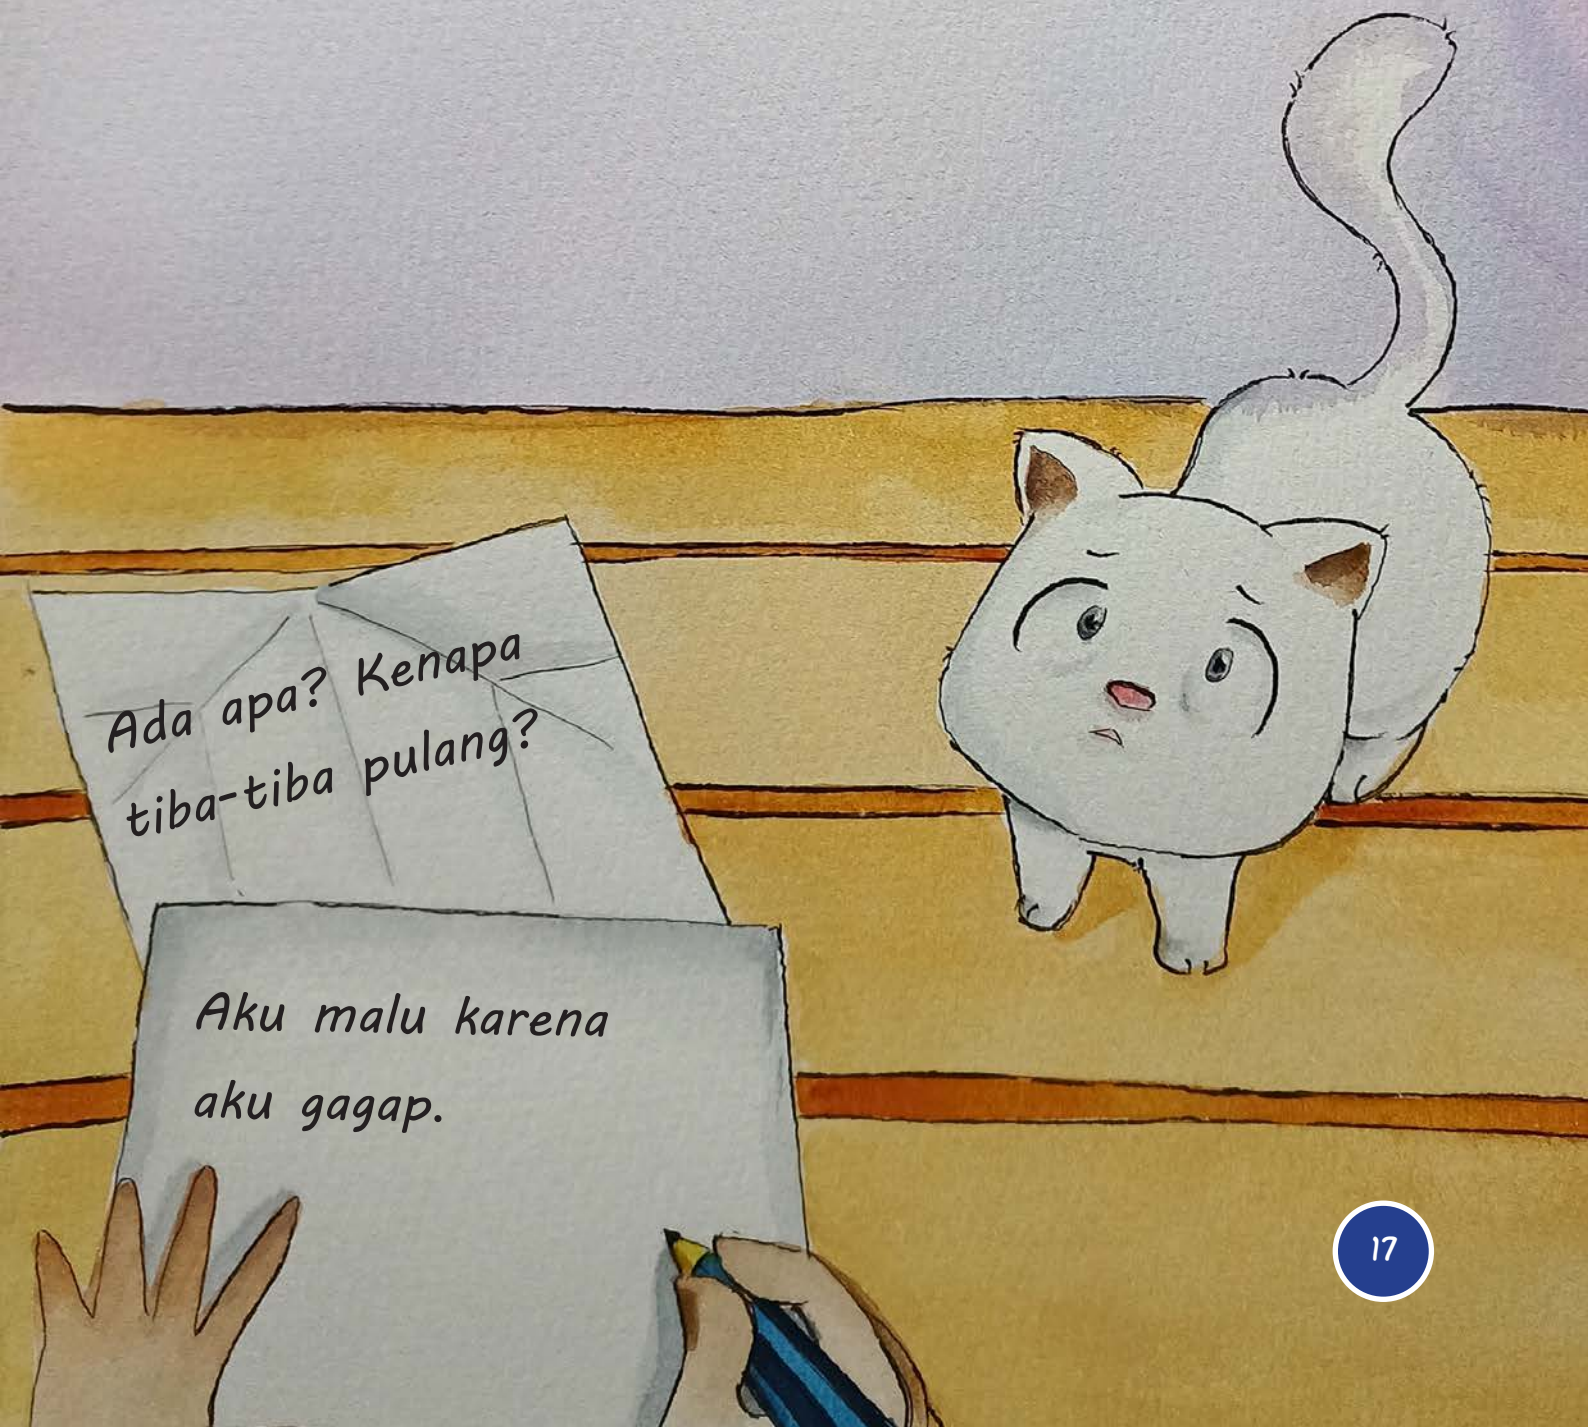 Ada apa? Kenapa
tiba-tiba pulang?
Aku malu karena
aku gagap.
17